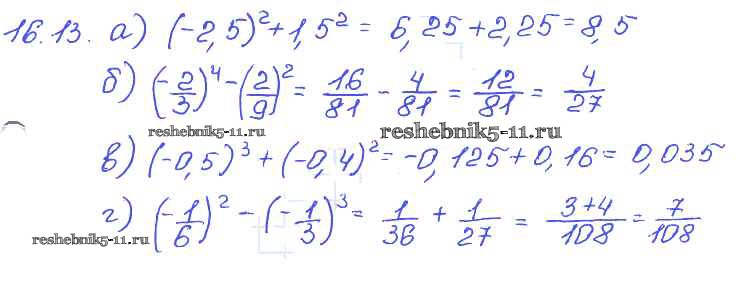 16.13. а) (-2,5)² + 1,5² = 6,25 + 2,25 = 8,5
б) (-2/3)⁴ - (2/9)² = 16/81 - 4/81 = 12/81 = 4/27
reshebnik5-11.ru reshebnik5-11.ru
в) (-0,5)³ + (-0,4)² = -0,125 + 0,16 = 0,035
г) (-1/6)² - (-1/3)³ = 1/36 + 1/27 = 3+4/108 = 7/108
reshebnik5-11.ru